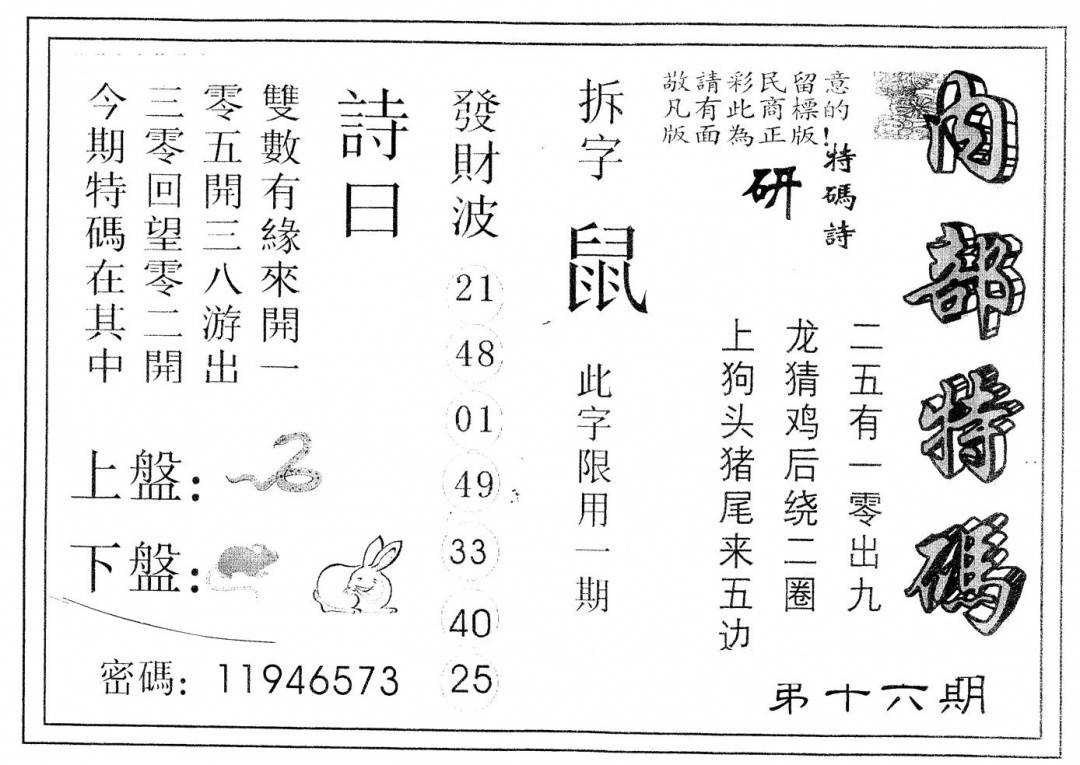 內部特碼
第十六期
敬請彩民留意
凡有此商標的
版面為正版!
特碼詩
研
二五有一零出九
龙猜鸡后绕二圈
上狗头猪尾来五边
拆字
鼠
此字限用一期
發財波
21
48
01
49
33
40
25
詩曰
雙數有緣來開一
零五開三八游出
三零回望零二開
今期特碼在其中
上盤:
下盤:
密碼: 11946573